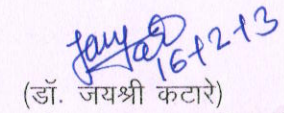 16/2/13
(डॉ. जयश्री कटारे)